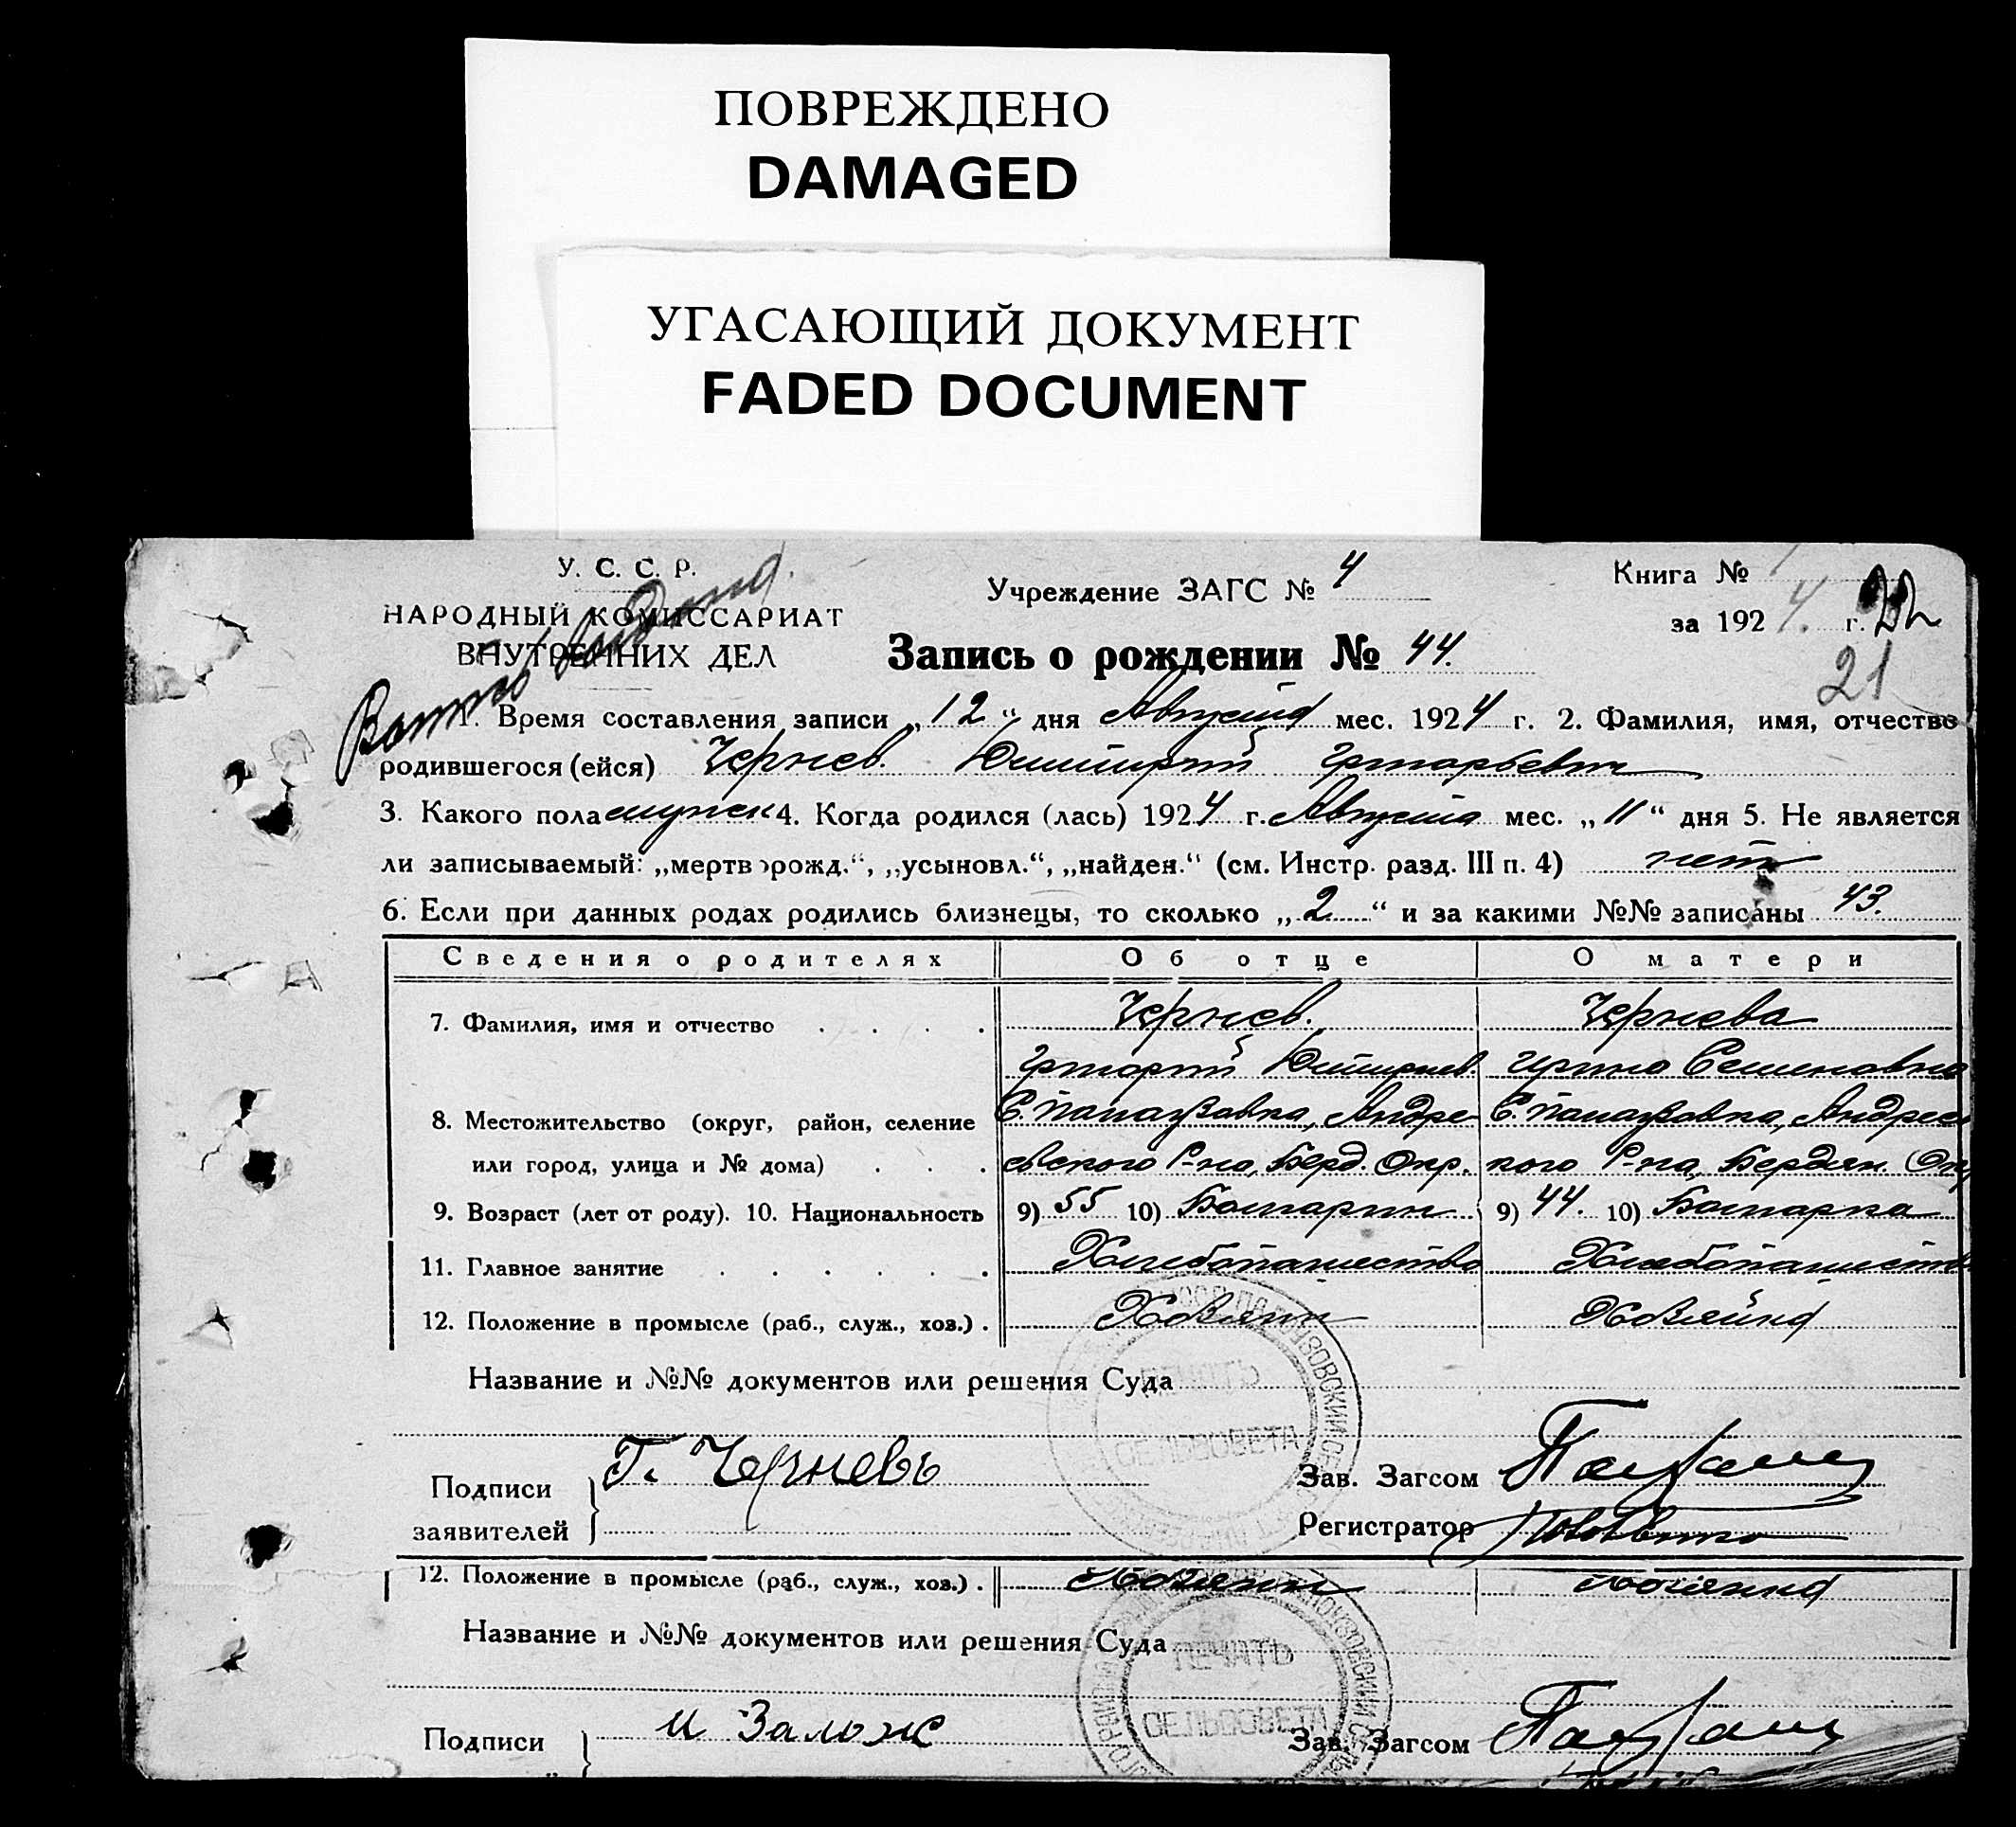 ПОВРЕЖДЕНО
DAMAGED
УГАСАЮЩИЙ ДОКУМЕНТ
FADED DOCUMENT
У. С. С. Р.
НАРОДНЫЙ КОМИССАРИАТ
ВНУТРЕННИХ ДЕЛ
Учреждение ЗАГС № 4
Книга № 1
за 1924 г. 22
21
Запись о рождении № 44.
1. Время составления записи „12“ дня Августа мес. 1924 г. 2. Фамилия, имя, отчество
родившегося (ейся) Чернев. Димитрий Григорьевич
3. Какого пола мужск 4. Когда родился (лась) 1924 г. Августа мес. „11“ дня 5. Не является
ли записываемый: „мертворожд.“, „усыновл.“, „найден.“ (см. Инстр. разд. III п. 4) нет
6. Если при данных родах родились близнецы, то сколько „2“ и за какими №№ записаны 43.
Сведения о родителях Об отце О матери
7. Фамилия, имя и отчество . . . . Чернев. Чернева
Григорий Димитриев Ирина Семеновна
8. Местожительство (округ, район, селение С. Палаузовка, Андре- С. Палаузовка, Андреев
или город, улица и № дома) . . . евского Р-на, Берд. Окр. кого Р-на, Бердян. Окр
9. Возраст (лет от роду). 10. Национальность 9) 55 10) Болгарин 9) 44. 10) Болгарка
11. Главное занятие . . . . . . Хлебопашество Хлебопашество
12. Положение в промысле (раб., служ., хоз.) . Хозяин Хозяйка
Название и №№ документов или решения Суда
ПЕЧАТЬ
СЕЛЬСОВЕТА
Подписи Г. Черневъ Зав. Загсом
заявителей Регистратор
12. Положение в промысле (раб., служ., хоз.) . Хозяин
Название и №№ документов или решения Суда
ПЕЧАТЬ
СЕЛЬСОВЕТА
Подписи Зав. Загсом